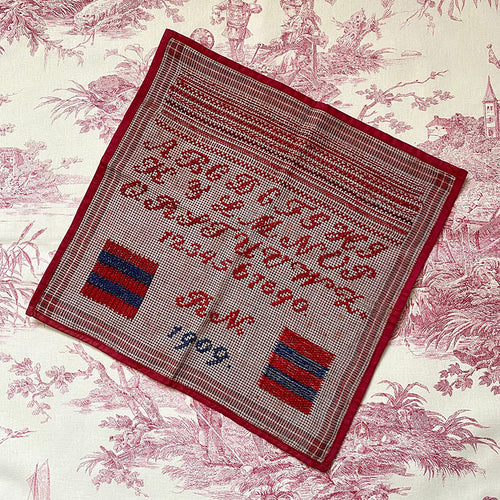 A B C D E F G H I J
K L M N O P
Q R S T U V W X.
1 2 3 4 5 6 7 8 9 0
R N.
1909.